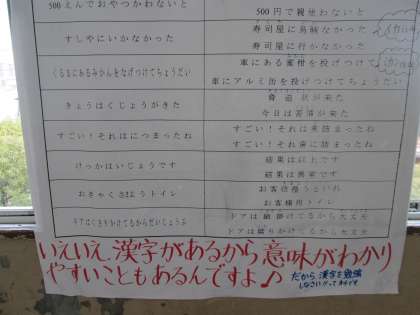 500えんでおやつかわないと
500円で親使わないと
すしやにいかなかった
寿司屋に烏賊なかった
寿司屋に行かなかった
くるまにあるみかんをなげつけてちょうだい
車にある蜜柑を投げつけて
車にアルミ缶を投げつけてちょうだい
きょうはくじょうがきた
脅迫状が来た
今日は苦情が来た
すごい!それはにつまったね
すごい!それは煮詰まったね
すごい!それ
に詰まったね
けっかはいじょうです
結果は以上です
結果は異常です
おきゃくさまようトイレ
お客様用トイレ
ドアは
かけてるから大丈夫
ドアは
かけてるから大丈夫
いえいえ、漢字があるから意味がわかり
やすいこともあるんですよ♪
だから、漢字を勉強
しなさいってオチです